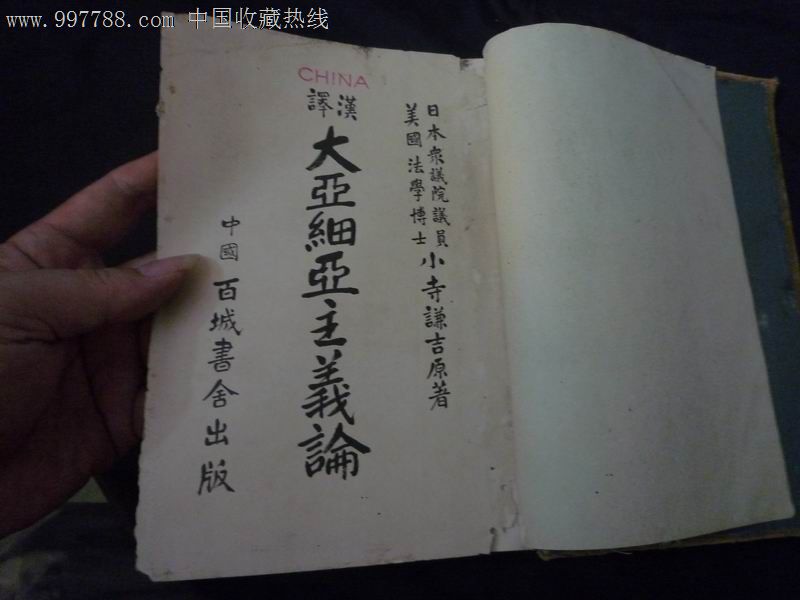 www.997788.com 中国收藏热线
CHINA
日本衆議院議員
美國法學博士
小寺謙吉原著
漢譯
大亞細亞主義論
中國百城書舍出版